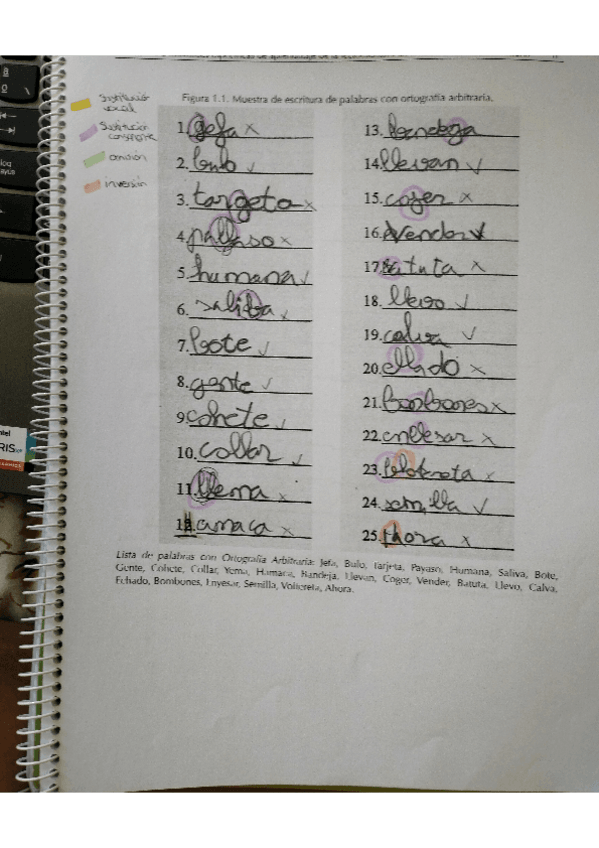 Sustitución vocal
Sustitución consonante
omisión
inversión
Figura 1.1. Muestra de escritura de palabras con ortografía arbitraria.
1. gefa x
2. bulo ✓
3. targeta x
4. pallaso x
5. humana ✓
6. saliba ✓
7. bote ✓
8. gente ✓
9. cohete ✓
10. collar ✓
11. llema x
12. amaca x
13. bandega
14. llevan ✓
15. cojer x
16. vender ✓
17. tatuta x
18. llevo ✓
19. calva ✓
20. ellado x
21. bonbones x
22. enllesar x
23. x
24. semilla ✓
25. x
Lista de palabras con Ortografía Arbitraria: Jefa, Bulo, Tarjeta, Payaso, Humana, Saliva, Bote,
Gente, Cohete, Collar, Yema, Hamaca, Bandeja, Llevan, Coger, Vender, Batuta, Llevo, Calva,
Echado, Bombones, Enyesar, Semilla, Voltereta, Ahora.